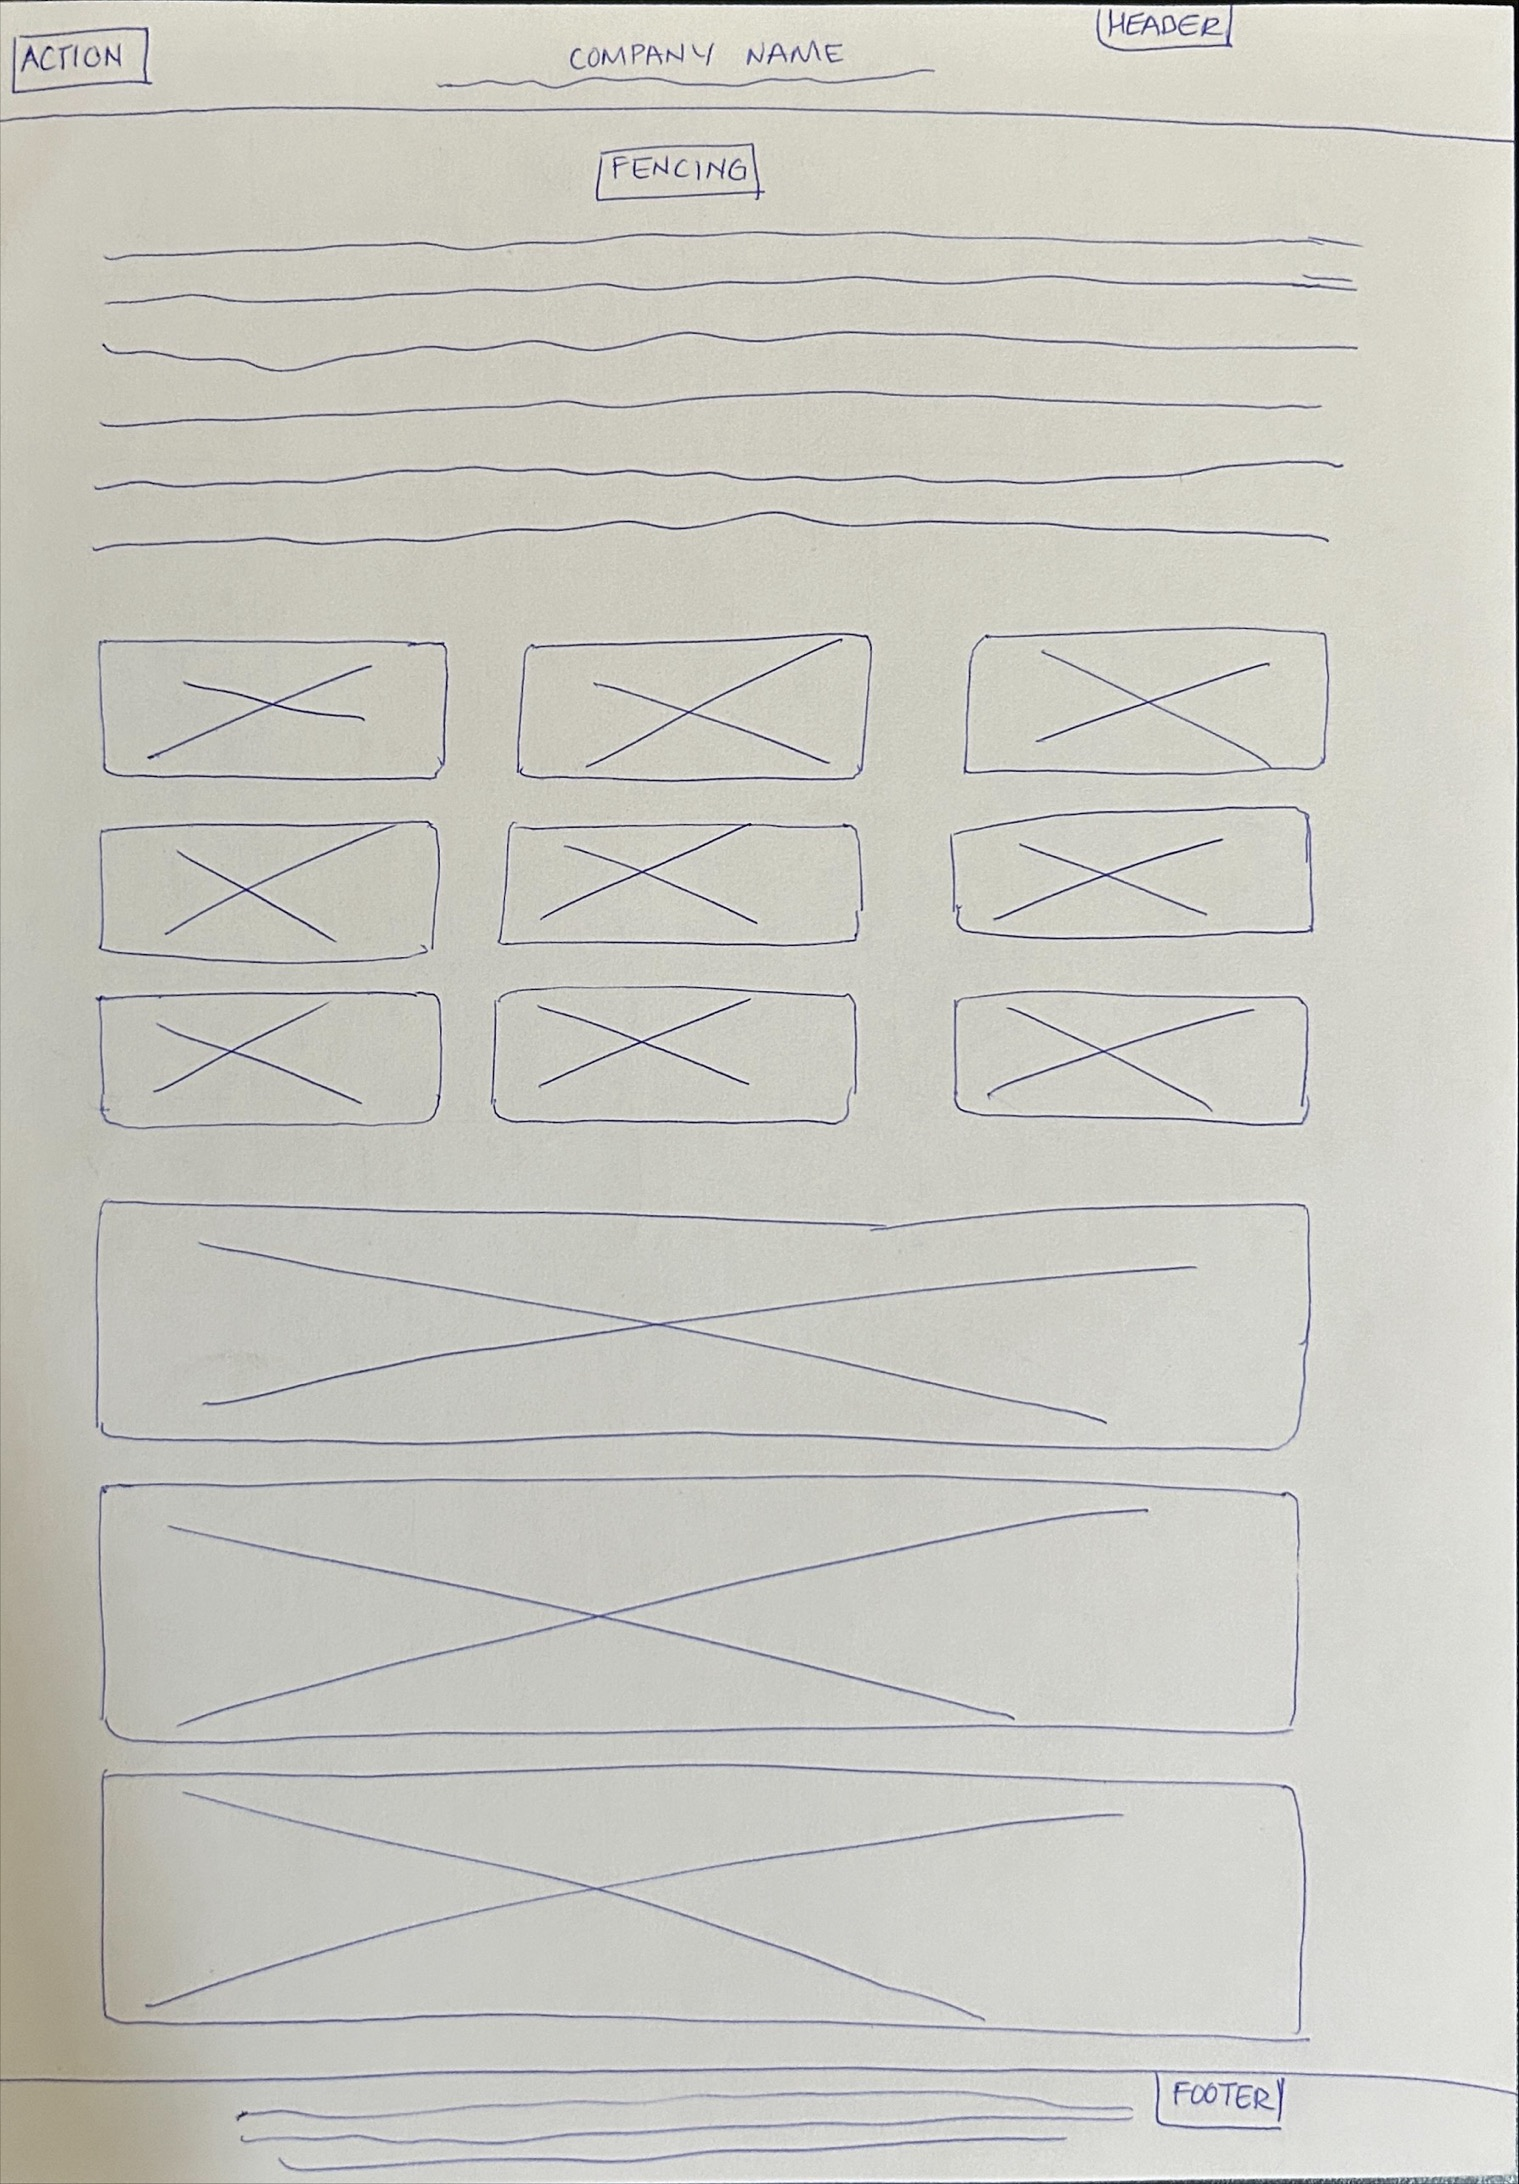 ACTION
COMPANY NAME
HEADER
FENCING
FOOTER